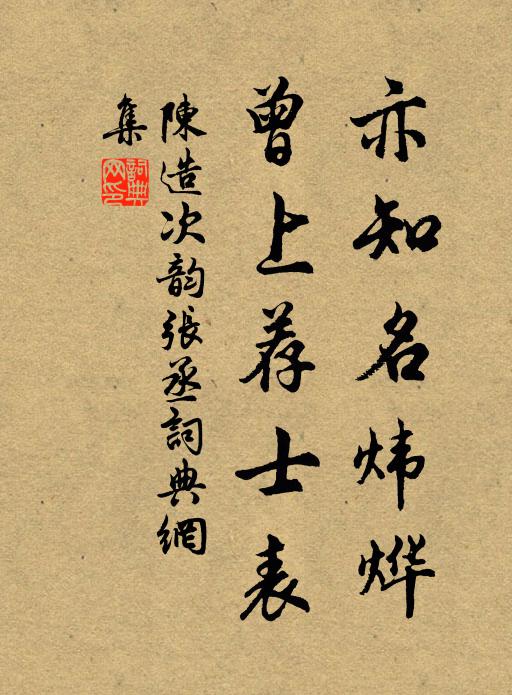 亦知名炜烨
曾上荐士表
陳造次韵張丞詞典網
集
詞典
网印